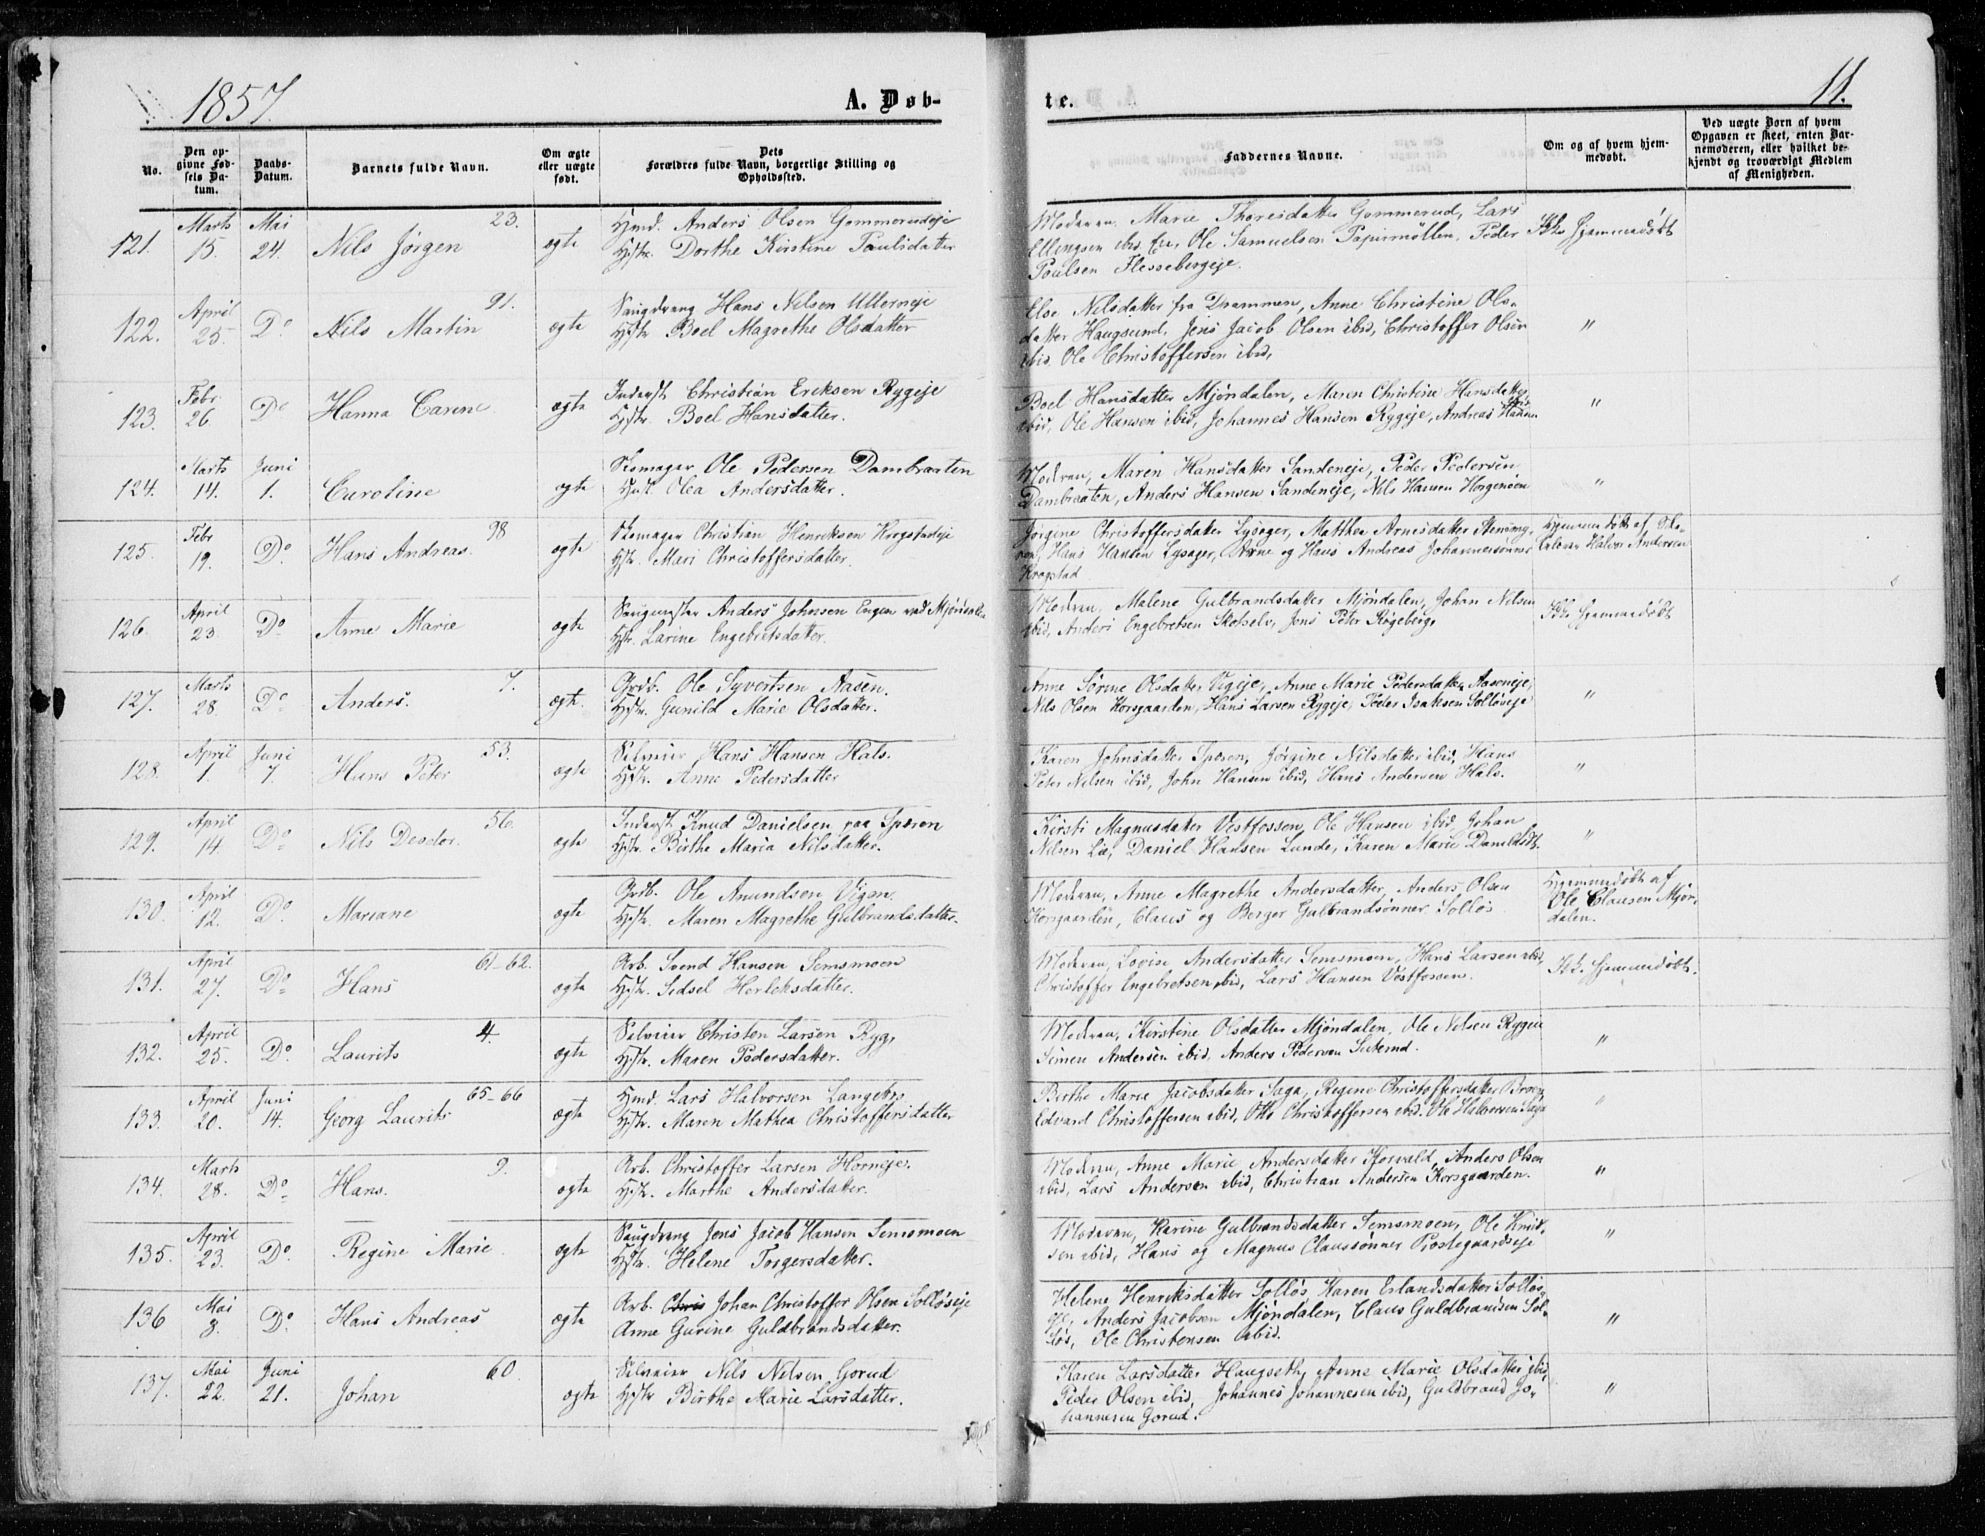 1857. A. Døb- te. 11.
No.
Den opgivne Fødsels Datum.
Daabs-Datum.
Barnets fulde Navn.
Om ægte eller uægte født.
Dets Forældres fulde Navn, borgerlige Stilling og Opholdssted.
Faddernes Navne.
Om og af hvem hjemmedøbt.
Ved uægte Børn af hvem Opgaven er skeet, enten Barnemoderen, eller hvilket bekjendt og troværdigt Medlem af Menigheden.
121. Marts 15. Mai 24. Nils Jørgen 23. ægte
Hmd. Anders Olsen Gommerudeje
Hstr. Dorthe Kirstine Paulsdatter
Moderen, Marie Thoresdatter Gommerud, Lars
Ellengsen ibid, Ole Samuelsen Papirmøllen, Peder
Poulsen Flessebergeje.
Ikke hjemmedøbt
122. April 25. Do Nils Martin 91. ægte
Saugdreng Hans Nilsen Ullerneje
Hstr. Boel Magrethe Olsdatter
Else Nilsdatter fra Drammen, Anne Christine Ols-
datter Haugsund, Jens Jacob Olsen ibid, Christoffer Olsen
ibid, Ole Christoffersen ibid.
"
123. Febr 26. Do Hanna Carine ægte
Inderst Christian Eriksen Rygeje
Hstr. Boel Hansdatter.
Boel Hansdatter Mjøndalen, Maren Christine Hansdatter
ibid, Ole Hansen ibid, Johannes Hansen Rygeje, Andreas Hansen ibid
"
124. Marts 14. Juni 1. Caroline ægte
Skomager Ole Pedersen Dambraaten
Hust. Olea Andersdatter.
Moderen, Maren Hansdatter Sandeneje, Peder Pedersen
Dambraaten, Anders Hansen Sandeneje, Nils Hansen Horgenøen
"
125. Febr 19. Do. Hans Andreas. 98 ægte
Skomager Christian Henriksen Krogstadeje
Hstr. Mari Christoffersdatter.
Jørgine Christoffersdatter Lysager, Matthea Arnesdatter
Hans Hansen Lysager, Arne og Hans Andreas Johannessønner
Krogstad
Hjemmedøbt af Sko-
lelærer Halvor Andersen
126. April 23. Do Anne Marie ægte
Saugmester Anders Johnsen Engen ved Mjøndalen
Hstr. Larine Engebretsdatter.
Moderen, Malene Gulbrandsdatter Mjøndalen, Johan Nilsen
ibid, Anders Engebretsen Skotselv, Jens Peter Røgeberg.
Ikke hjemmedøbt
127. Marts 28. Do Anders. 7. ægte.
Grdb. Ole Syvertsen Aasen.
Hstr. Gunild Marie Olsdatter.
Anne Sørine Olsdatter Vigeje, Anne Marie Pedersdatter Aaseneje,
Nils Olsen Korsgaarden, Hans Larsen Rygeje, Peder Isaksen Solløseje
"
128. April 1. Juni 7. Hans Peter 53. ægte
Selveier Hans Hansen Hals.
Hstr. Anne Pedersdatter
Karen Johnsdatter Speren, Jørgine Nilsdatter ibid, Hans
Peter Nilsen ibid, John Hansen ibid, Hans Andersen Hals.
"
129. April 14. Do Nils Deodor. 56. ægte
Inderst Knud Danielsen paa Speren
Hstr. Birthe Maria Nilsdatter.
Kirsti Magnusdatter Vestfossen, Ole Hansen ibid, Johan
Nilsen Lie, Daniel Hansen Lunde, Karen Marie Danildtr.
"
130. April 12. Do. Mariane ægte
Grdb. Ole Amundsen Vigen.
Hstr. Maren Magrethe Gulbrandsdatter.
Moderen, Anne Magrethe Andersdatter, Anders Olsen
Korsgaarden, Claus og Berger Gulbrandsønner Solløs
Hjemmedøbt af
Ole Clausen Mjøn-
dalen.
131. April 27. Do Hans 61-62. ægte
Arb. Svend Hansen Semsmoen
Hstr. Sidsel Herleksdatter.
Moderen, Lovise Andersdatter Semsmoen, Hans Larsen ibid,
Christoffer Engebretsen ibid, Lars Hansen Vestfossen.
Ikke hjemmedøbt.
132. April 25. Do. Laurits 4. ægte
Selveier Christen Larsen Ryg,
Hstr. Maren Pedersdatter.
Moderen, Kirstine Olsdatter Mjøndalen, Ole Nilsen Rygeie
Simen Andersen ibid, Anders Pedersen
"
133. April 20. Juni 14. Georg Laurits 65-66 ægte
Hmd. Lars Halvorsen Langebro
Hstr. Maren Mathea Christoffersdatter
Birthe Marie Jacobsdatter Saga, Regine Christoffersdatter Broen,
Edvard Christoffersen ibid, Otto Christoffersen ibid, Ole Halvorsen Saga
"
134. Marts 28. Do Hans. 9. ægte
Arb. Christoffer Larsen Horneje.
Hstr. Marthe Andersdatter.
Moderen, Anne Marie Andersdatter Kforvald, Anders Olsen
ibid, Lars Andersen ibid, Christian Andersen Korsgaarden.
"
135. April 23. Do. Regine Marie ægte
Saugdreng Jens Jacob Hansen Semsmoen
Hstr. Helene Torgersdatter.
Moderen, Karine Gulbrandsdatter Semsmoen, Ole Knud-
sen ibid, Hans og Magnus Claussønner Præstegaardseje
"
136 Mai 8. Do. Hans Andreas ægte
Arb. Chris Johan Christoffer Olsen Solløseje
Anne Gurine Guldbrandsdatter.
Helene Henriksdatter Solløs, Karen Erlandsdatter Solløs-
eje, Anders Jacobsen Mjøndalen, Claus Guldbrandsen Sol-
løs, Ole Christensen ibid.
"
137. Mai 22. Juni 21. Johan 60. ægte
Selveier Nils Nilsen Gorud
Hstr. Birthe Marie Larsdatter.
Karen Larsdatter Haugseth, Anne Marie Olsdatter ibid,
Peder Olsen ibid, Johannes Johannesen ibid, Guldbrand Jo-
hannesen Gorud.
"